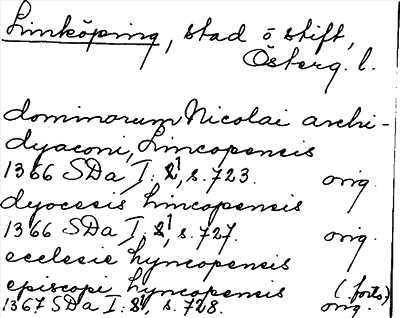 Linköping, stad o stift,
Österg. l.
dominorum Nicolai archi-
dyaconi, Lincopensis
1366 SDa I: 1, s. 723. orig.
dyocesis Lincopensis
1366 SDa I: 1, s. 727. orig.
ecclesie Lyncopensis
episcopi Lyncopensis (forts.)
1367 SDa I: 1, s. 728. orig.